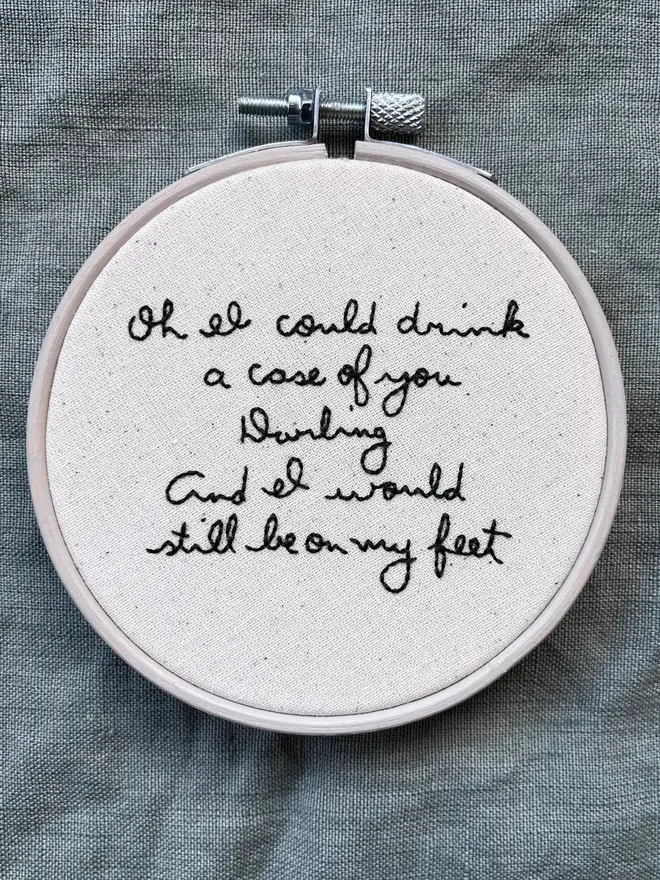 Oh I could drink
a case of you
Darling
And I would
still be on my feet